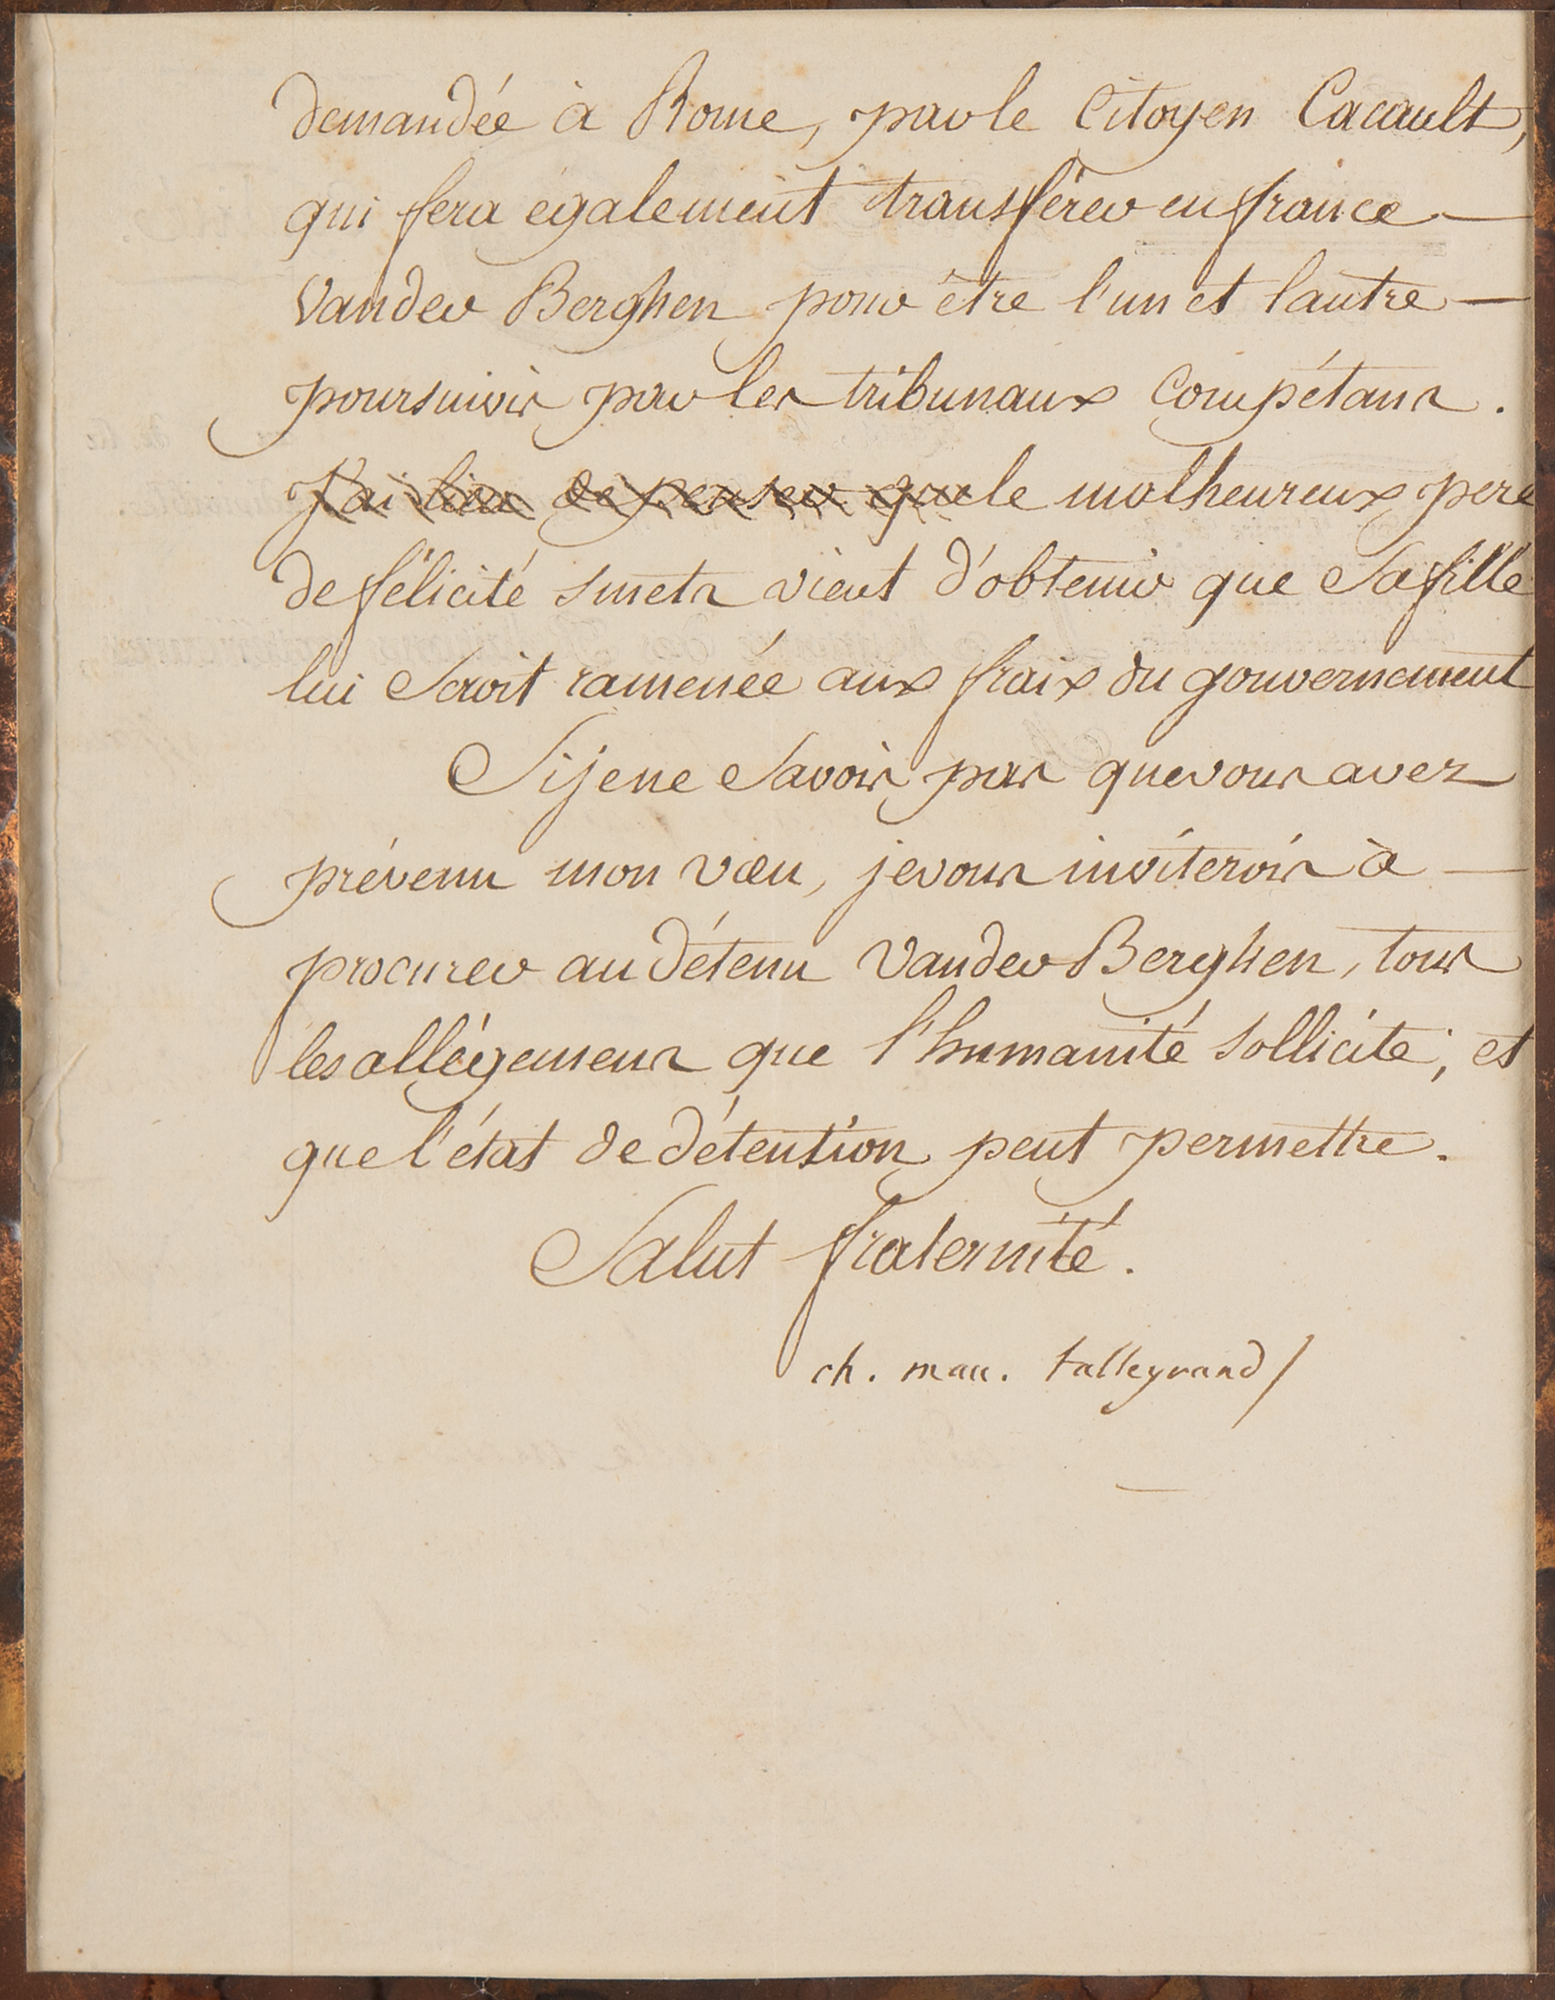 demandée à Rome, par le Citoyen Cacault,
qui fera également transférer en france —
Vander Berghen pour être l'un et lautre —
poursuivis par les tribunaux Compétans.
J'ai lieu de penser que le malheureux pere
de félicité smets vient d'obtenir que Sa fille
lui Seroit ramenée aux fraix du gouvernement
Si je ne Savois pas que vous avez
prévenu mon vœu, je vous inviterois à —
procurer au détenu Vander Berghen, tous
les allégemens que l'humanité sollicite, et
que l'état de détention peut permettre.
Salut fraternité.
ch. mau. talleyrand/